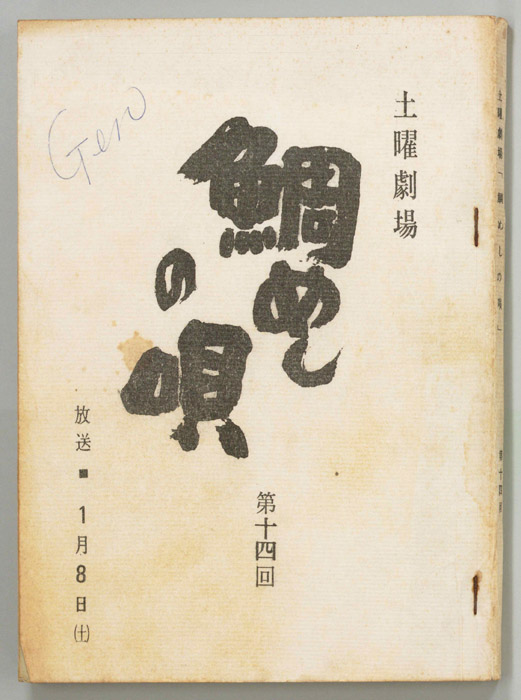 土曜劇場
鯛めし
の唄
第十四回
放送■1月8日(土)
Gen
土曜劇場「鯛めしの唄」 第十四回